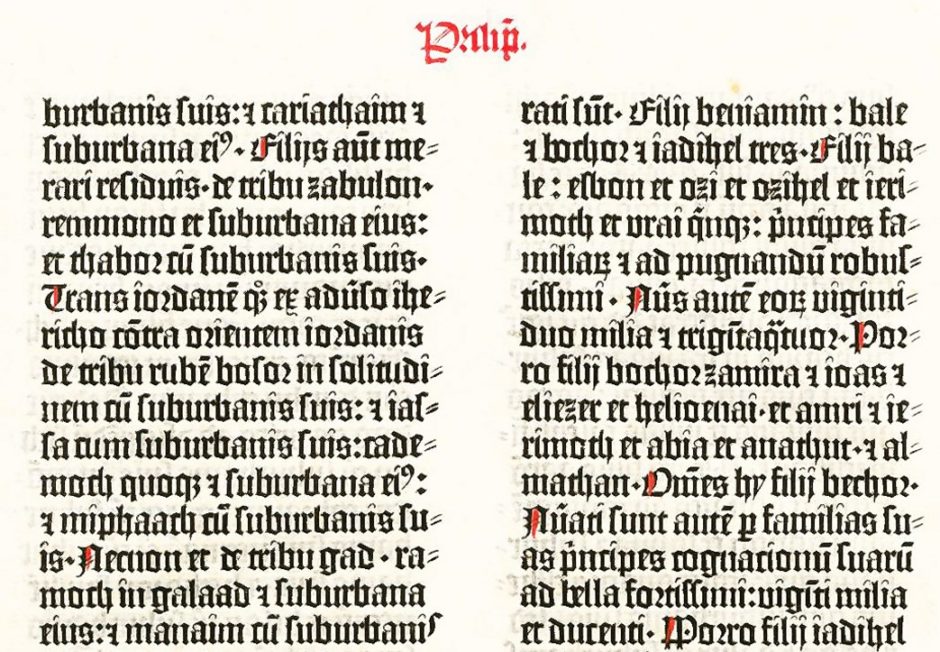 Pralip̄.
burbanis ſuis:⁊ cariathaim ⁊
ſuburbana eiꝰ. Filijs aūt me⸗
rari reſiduis. de tribu zabulon.
remmono et ſuburbana eius:
et thabor cū ſuburbanis ſuis.
Trans iordanē qꝫ ex adūſo ihe⸗
richo cōtra orientem iordanis
de tribu rubē boſor in ſolitudi⸗
nem cū ſuburbanis ſuis: ⁊ iaſ⸗
ſa cum ſuburbanis ſuis:cade⸗
moth quoqꝫ ⁊ ſuburbana eiꝰ:
⁊ miphaath cū ſuburbanis ſu⸗
is. Necnon et de tribu gad. ra⸗
moth in galaad ⁊ ſuburbana
eius:⁊ manaim cū ſuburbaniſ
rati sūt. Filij beniamin : bale
⁊ bochor ⁊ iadihel tres. Filij ba⸗
le : esbon et ozi et ozihel et ieri⸗
moth et vrai q̄nqꝫ: p̄ncipes fa⸗
miliaꝝ ⁊ ad pugnandū robuſ⸗
tiſſimi. Nūs autē eoꝝ viginti⸗
duo milia ⁊ trigītaq̄tuor. Por⸗
ro filij bochor zamira ⁊ ioas ⁊
eliezer et helioenai. et amri ⁊ ie⸗
rimoth et abia et anathut. ⁊ al⸗
mathan. Om̄es hy filij bechor.
Nūati ſunt autē ꝑ familias ſu⸗
as p̄ncipes cognacionū ſuarū
ad bella fortiſſimi:vigīti milia
et ducenti. Porro filij iadihel